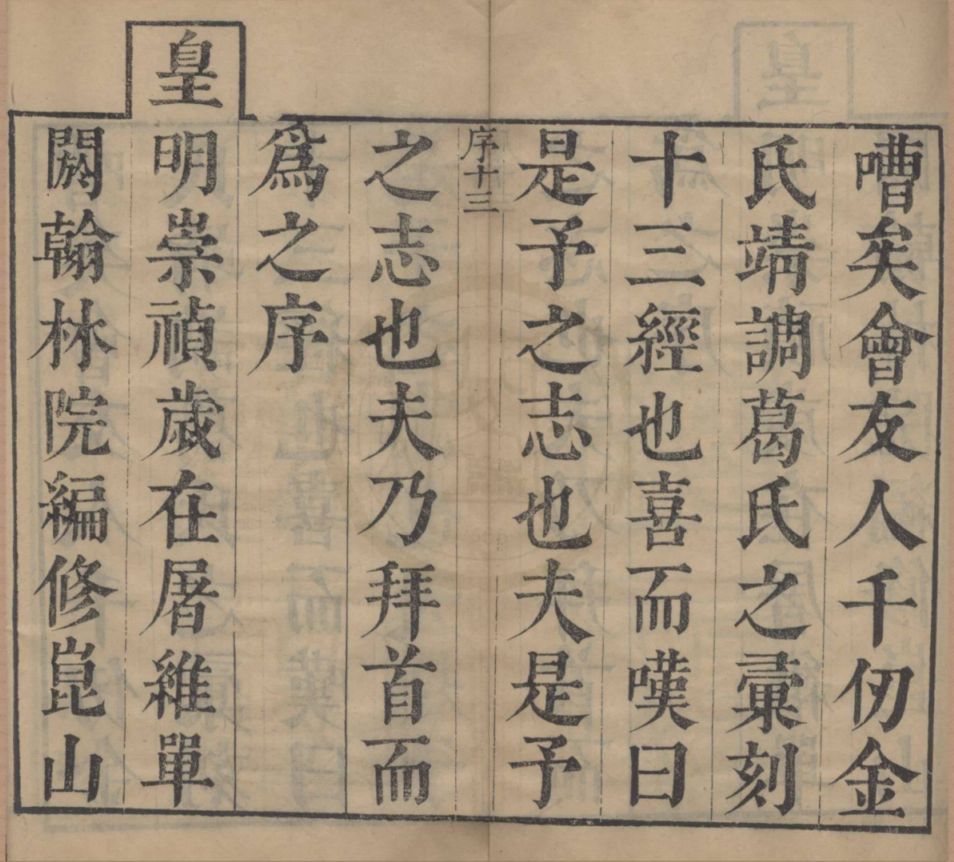 嘈矣會友人千仞金
氏靖調葛氏之彙刻
十三經也喜而嘆曰
是予之志也夫是予
序十三
之志也夫乃拜首而
爲之序
皇明崇禎歲在屠維單
閼翰林院編修崑山